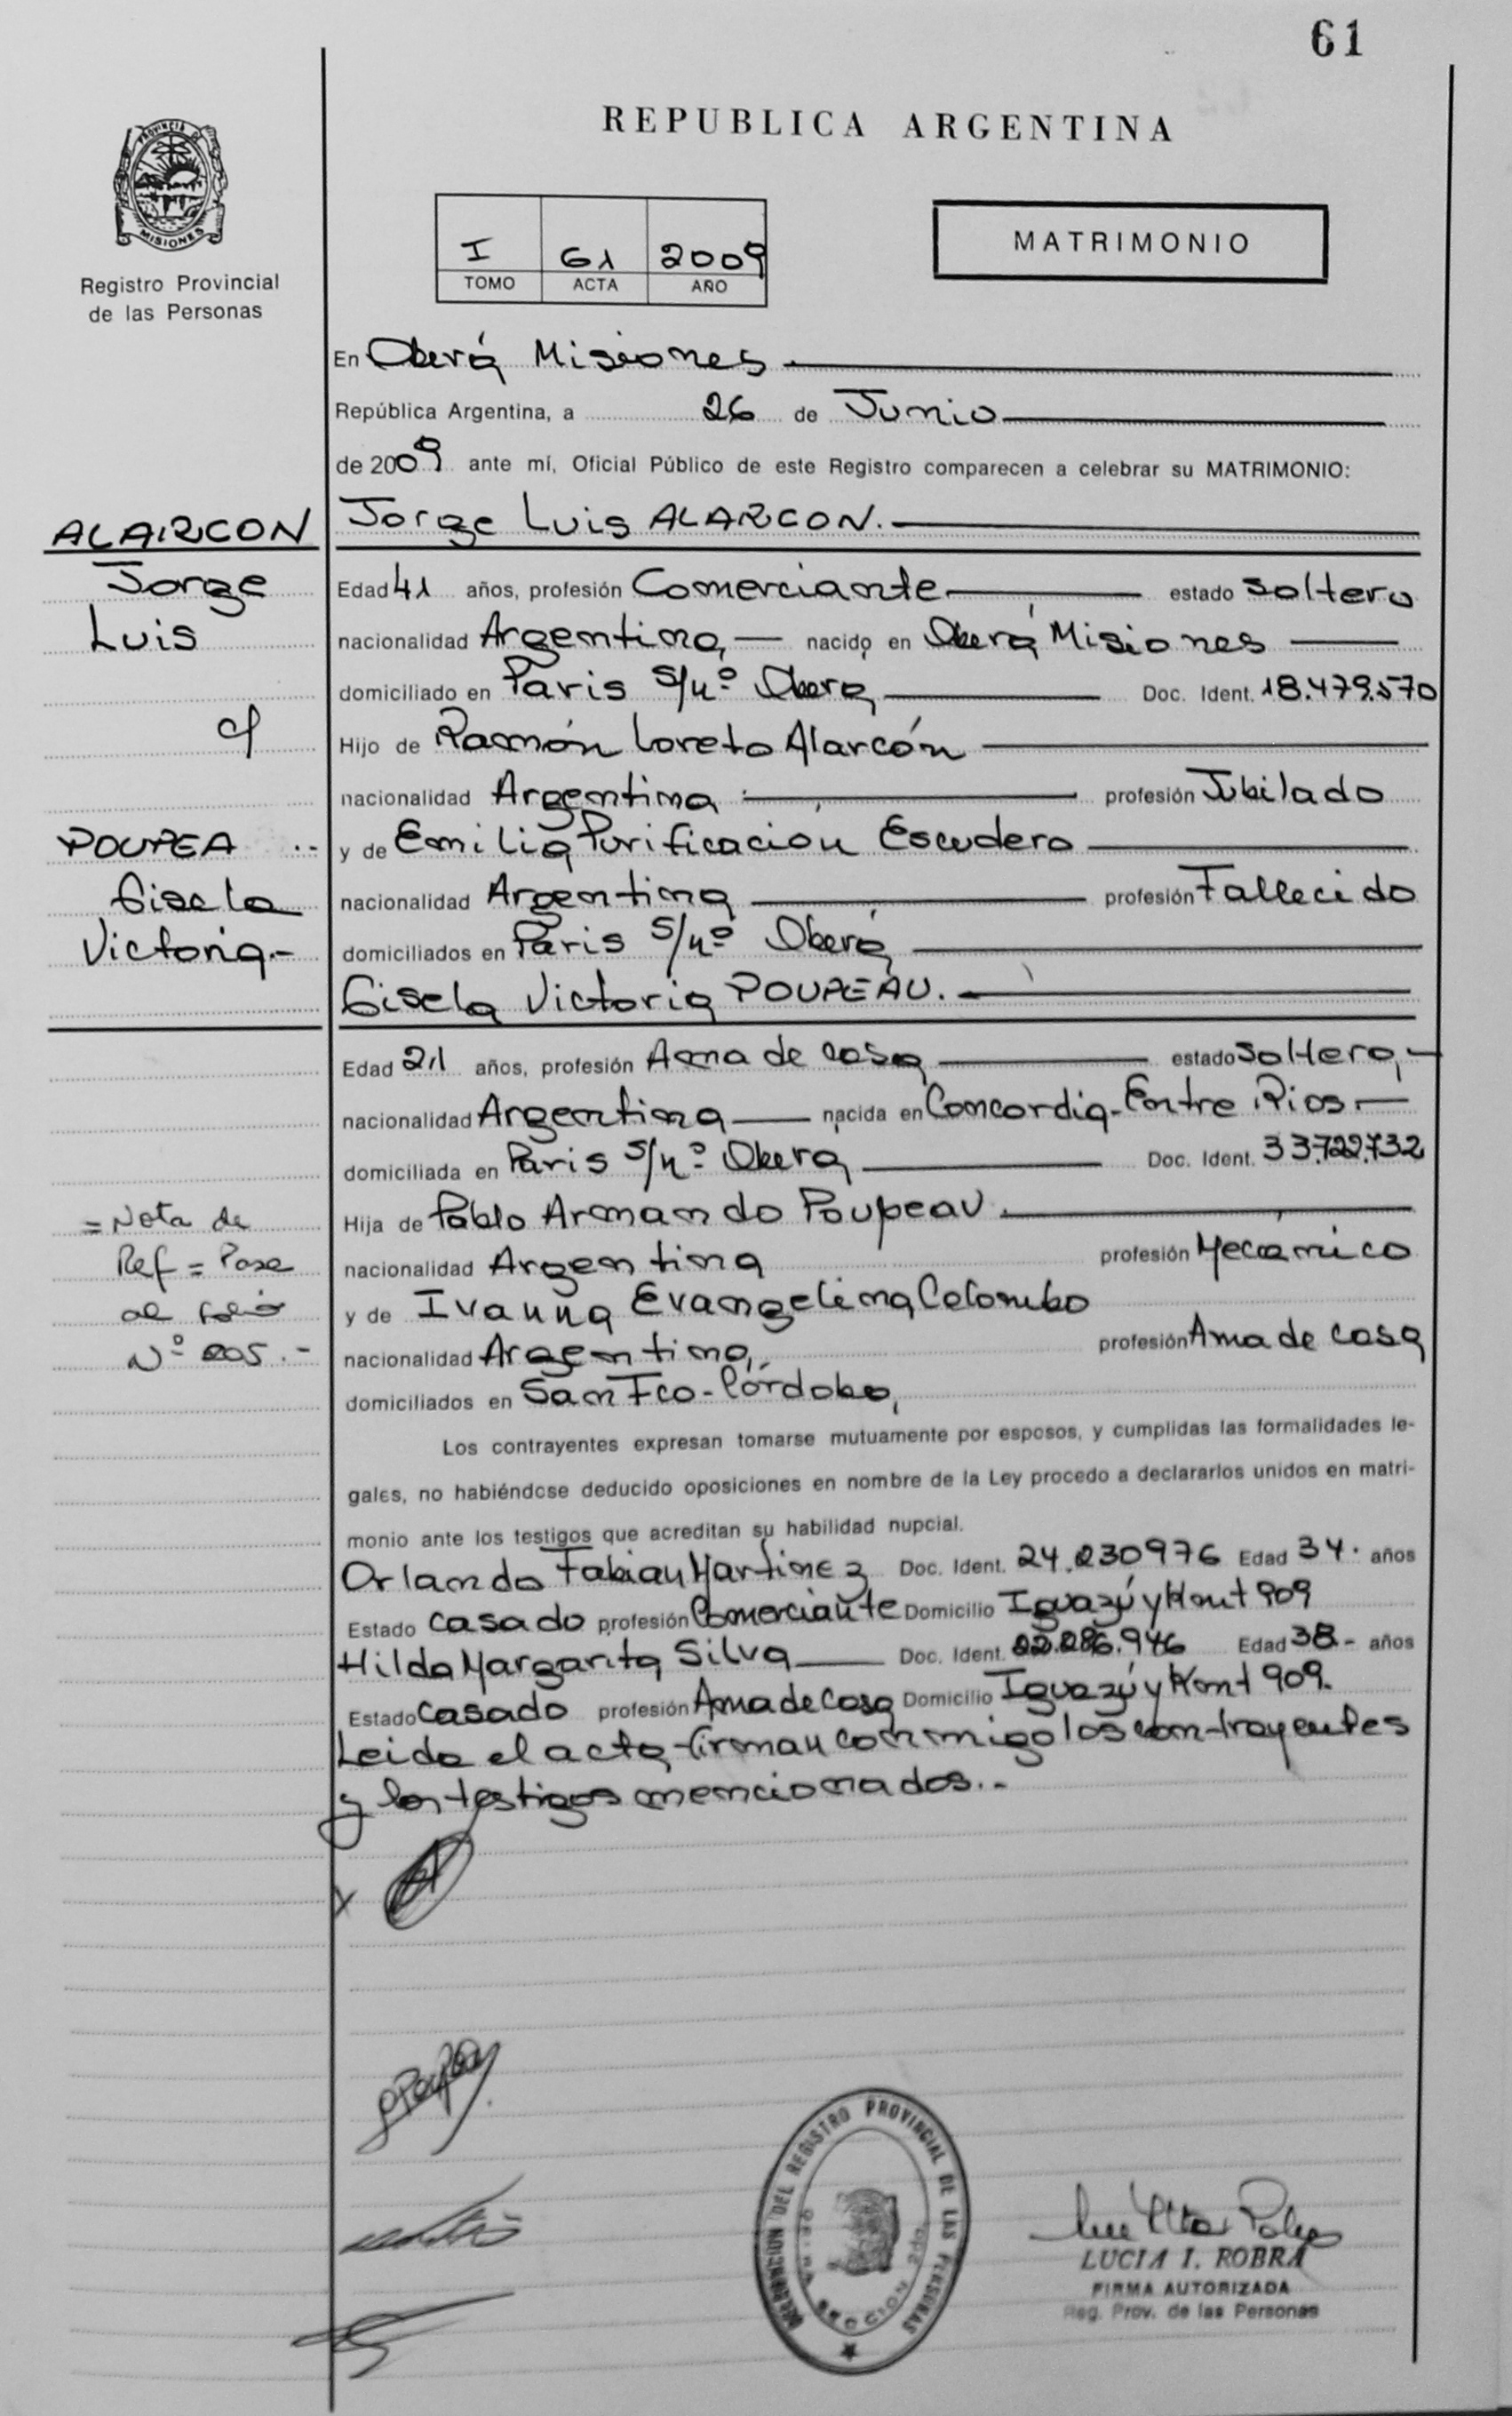 61
REPUBLICA ARGENTINA
PROVINCIA DE
MISIONES
Registro Provincial
de las Personas
I 61 2009
TOMO ACTA AÑO
MATRIMONIO
En Oberá Misiones
República Argentina, a 26 de Junio
de 2009 ante mí, Oficial Público de este Registro comparecen a celebrar su MATRIMONIO:
Jorge Luis ALARCON.
ALARCON
Jorge
Luis
c/
POUPEA
Gisela
Victoria.-
Edad 41 años, profesión Comerciante estado soltero
nacionalidad Argentina nacido en Oberá Misiones
domiciliado en Paris S/nº Oberá Doc. Ident. 18.479.570
Hijo de Ramón Loreto Alarcón
nacionalidad Argentina profesión Jubilado
y de Emilia Purificación Escudero
nacionalidad Argentina profesión Fallecido
domiciliados en Paris S/nº Oberá
Gisela Victoria POUPEAU.
Edad 21 años, profesión Ama de casa estado soltera
nacionalidad Argentina nacida en Concordia - Entre Rios
domiciliada en Paris S/nº Oberá Doc. Ident. 33.722.732
Hija de Pablo Armando Poupeau.
nacionalidad Argentina profesión Mecanico
y de Ivanna Evangelina Colombo
nacionalidad Argentina profesión Ama de casa
domiciliados en San Fco - Córdoba
= Nota de
Ref = Pase
al folio
Nº 205.-
Los contrayentes expresan tomarse mutuamente por esposos, y cumplidas las formalidades le-
gales, no habiéndose deducido oposiciones en nombre de la Ley procedo a declararlos unidos en matri-
monio ante los testigos que acreditan su habilidad nupcial.
Orlando Fabian Martinez Doc. Ident. 24.230976 Edad 34. años
Estado casado profesión Comerciante Domicilio Iguazú y 909
Hilda Margarita Silva Doc. Ident. 22.286.946 Edad 38.- años
Estado casado profesión Ama de Casa Domicilio Iguazú y 909.
Leida el acta, firman conmigo los contrayentes
y los testigos mencionados.-
DEL REGISTRO PROVINCIAL DE LAS PERSONAS
SECCION 2da
LUCIA I. ROBRA
FIRMA AUTORIZADA
Reg. Prov. de las Personas